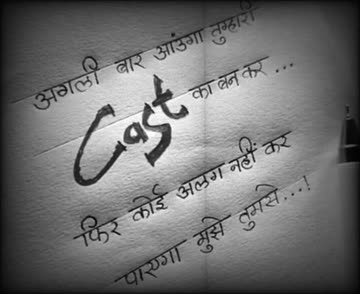 अगली बार आउंगा तुम्हारी
Cast का बन कर ...
फिर कोई अलग नहीं कर
पाएगा मुझे तुमसे...!